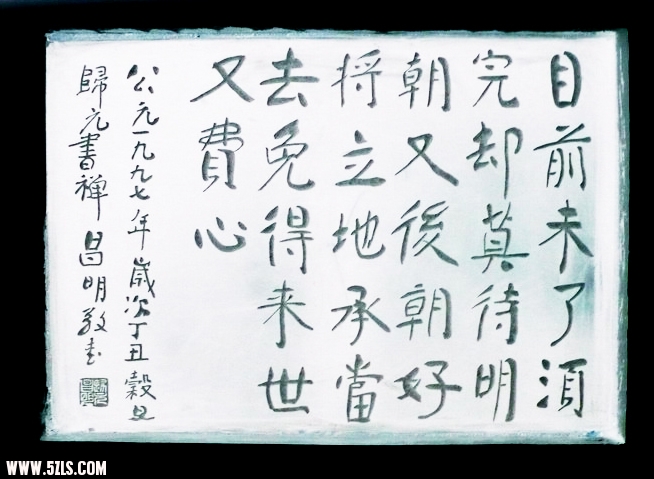 目前未了須
完却莫待明
朝又後朝好
將立地承當
去免得来世
又費心
公元一九九七年歲次丁丑穀旦
歸元書禅 昌明敬书
WWW.5ZLS.COM